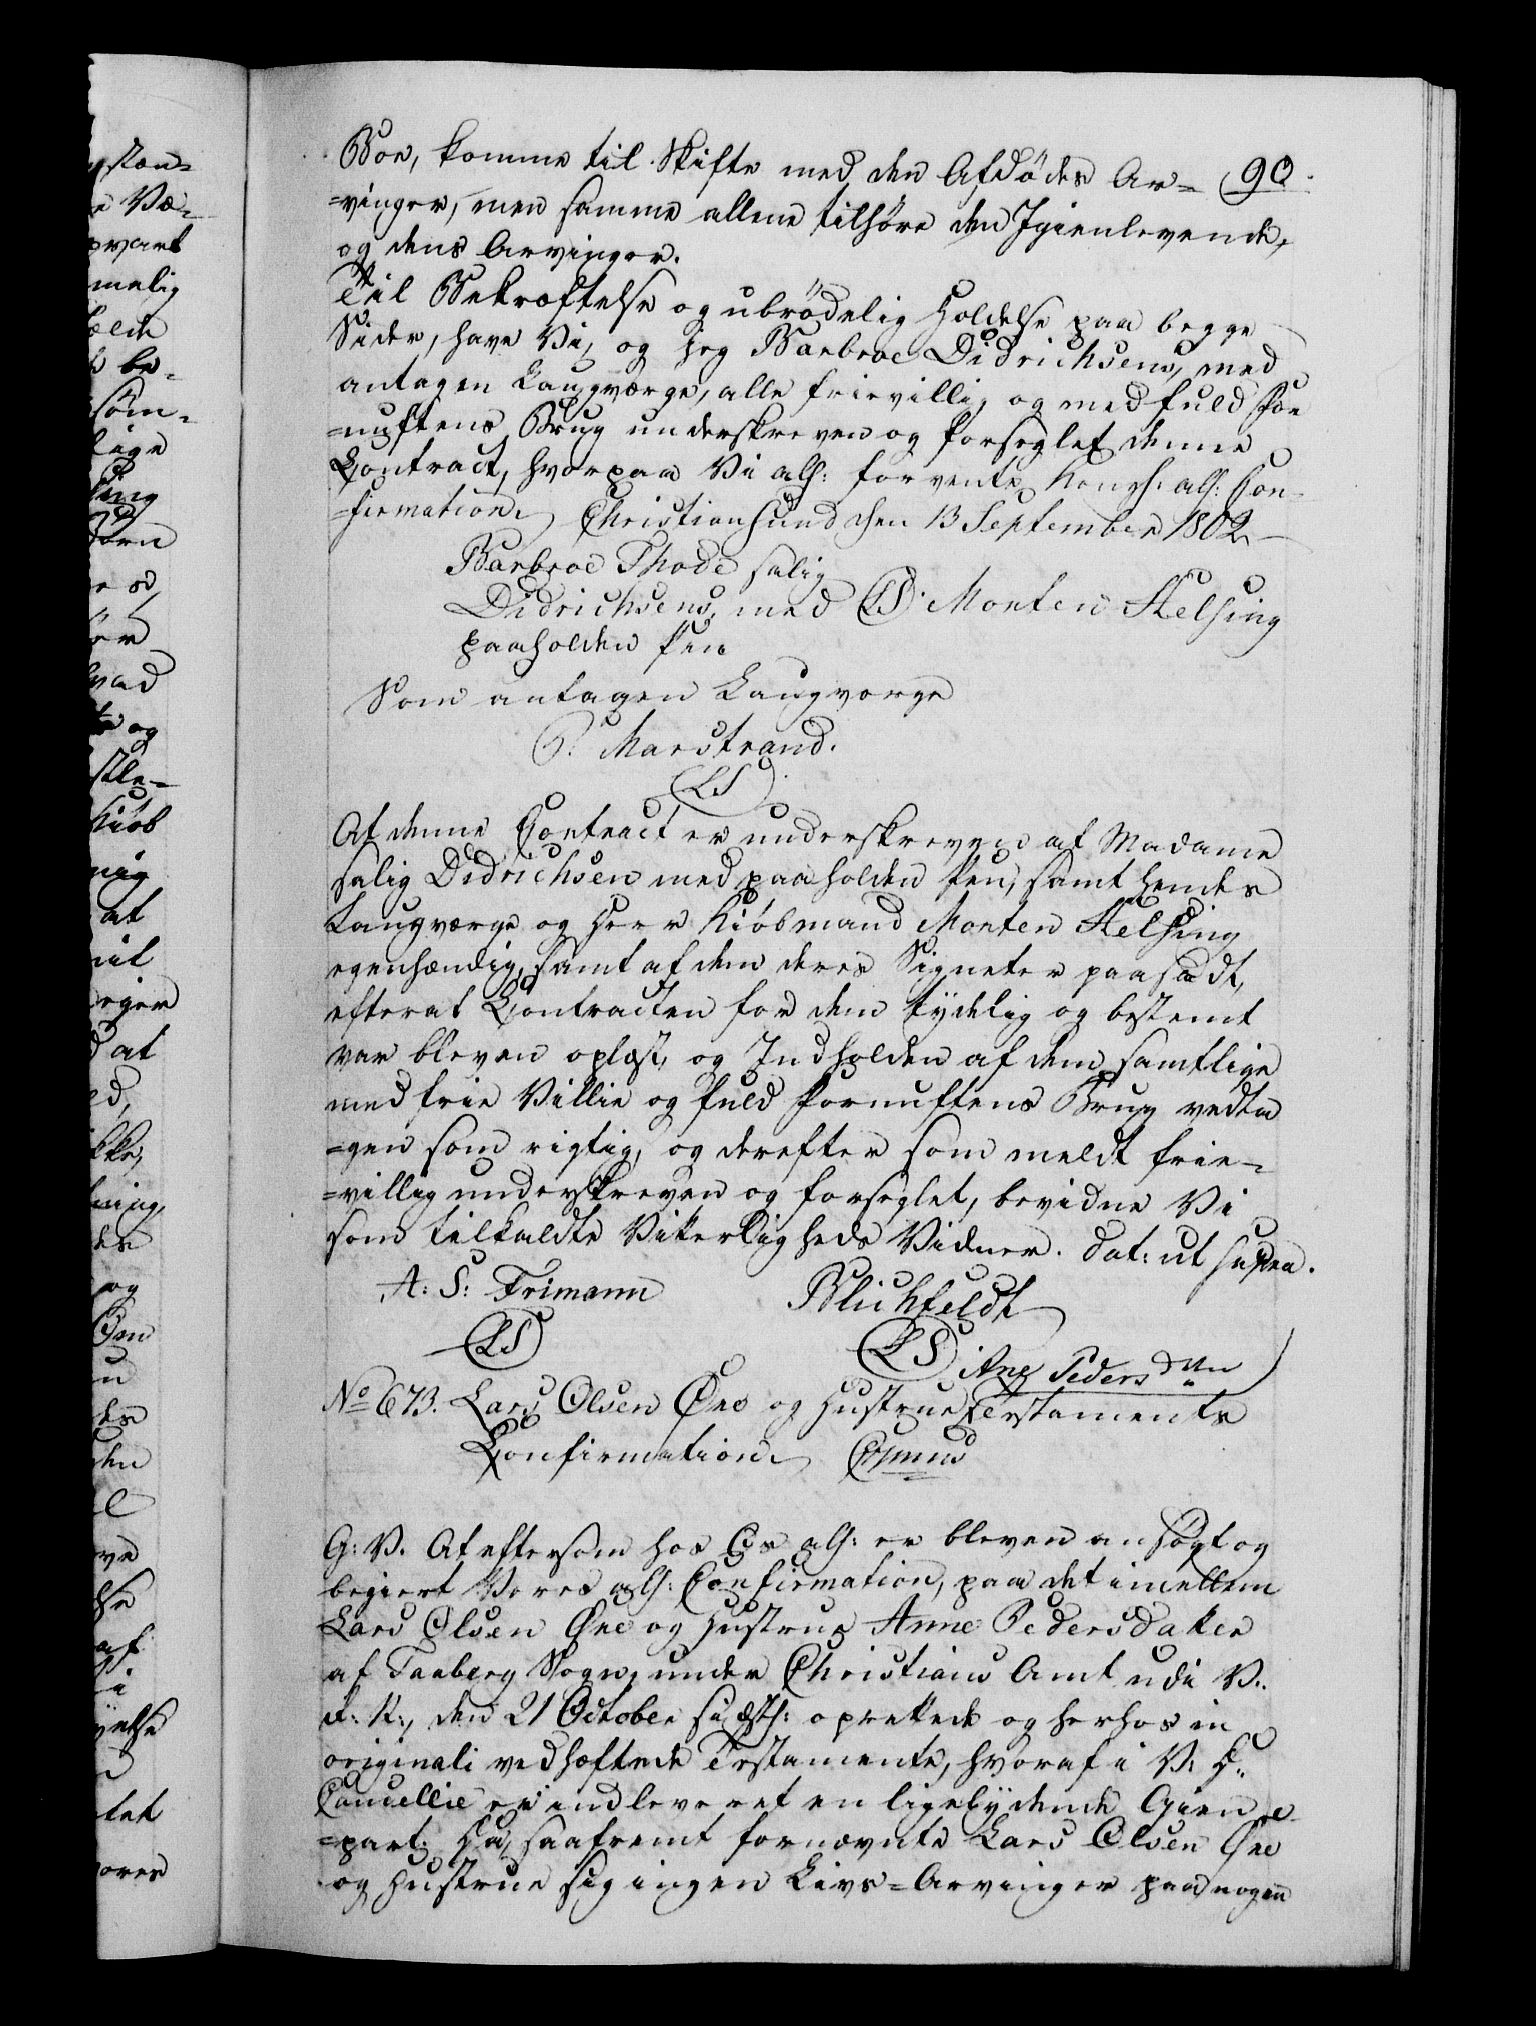 90.
Boe, komme til Skifte med den Afdødes Ar=
=vinger, men samme allene tilhøre den Igienlevende,
og dens Arvinger.
Til Bekræftelse og ubrødelig Holdelse paa begge
Sider, have Vi, og jeg Barbroe Didrichsens, med
antagen Laugværge, alle frievillig og med fuld For
=nuftens Brug underskreven og forseglet denne
Contract, hvorpaa Vi all: forvente Kongl: all: Con-
=firmation. Christiansund den 13 September 1802
Barbroe Thode salig
Didrichsens, med (LS). Morten Helsing
paaholden Pen
Som antagen Laugvorge
P. Marstrand.
(LS).
At denne Contract er underskreven af Madame
salig Didrichsen med paaholden Pen, samt hendes
Laugværge og Herr Kiøbmand Morten Helsing
egenhændig, samt af dem deres Signeter paasadt,
efterat Contracten for dem tydelig og bestemt
var bleven oplæst, og Indholden af dem samtlige
med frie Villie og fuld Fornuftens Brug vedta
=gen som rigtig, og derefter som meldt frie-
=villig underskreven og forseglet, bevidne Vi
som tilkaldte Vitterligheds Vidner. Dat: ut supra.
A: S: Trimann Blichfeldt
(LS) (LS)
Ane Peders D
No 673. Lars Olsen Øve og Hustrue Testaments
Confirmation.
G: V. At eftersom hos Os all: er bleven ansøgt og
begiert Vores all: Confirmation, paa det imellem
Lars Olsen Øve og Hustrue Anne Pedersdatter
af Faaberg Sogn, under Christians Amt udi V.
R: N:, den 21 October sidstl: oprettede og herhos in
originali vedhæftede Testamente, hvoraf i V: D:
Cancellie er indleveret en ligelydende Gien
=part: Da, saafremt fornævnte Lars Olsen Øve
og Hustrue sig ingen Livs=Arvinger paa nogen